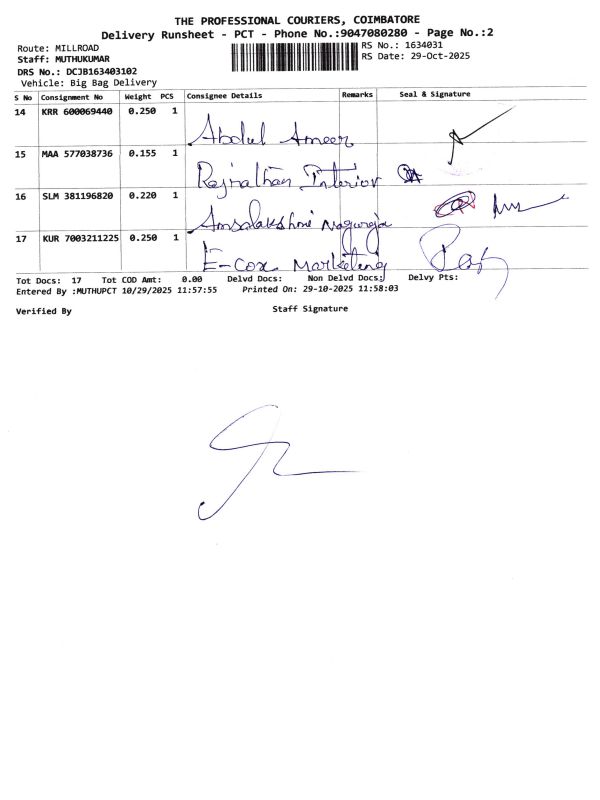 THE PROFESSIONAL COURIERS, COIMBATORE
Delivery Runsheet - PCT - Phone No.:9047080280 - Page No.:2
Route: MILLROAD
RS No.: 1634031
Staff: MUTHUKUMAR
RS Date: 29-Oct-2025
DRS No.: DCJB163403102
Vehicle: Big Bag Delivery
S No Consignment No Weight PCS Consignee Details Remarks Seal & Signature
14 KRR 600069440 0.250 1
Abdul Ameer
15 MAA 577038736 0.155 1
Rajnathan Interior
16 SLM 381196820 0.220 1
Nagaraja
17 KUR 7003211225 0.250 1
E-Cox Marketing
Tot Docs: 17 Tot COD Amt: 0.00 Delvd Docs: Non Delvd Docs: Delvy Pts:
Entered By :MUTHUPCT 10/29/2025 11:57:55 Printed On: 29-10-2025 11:58:03
Verified By Staff Signature